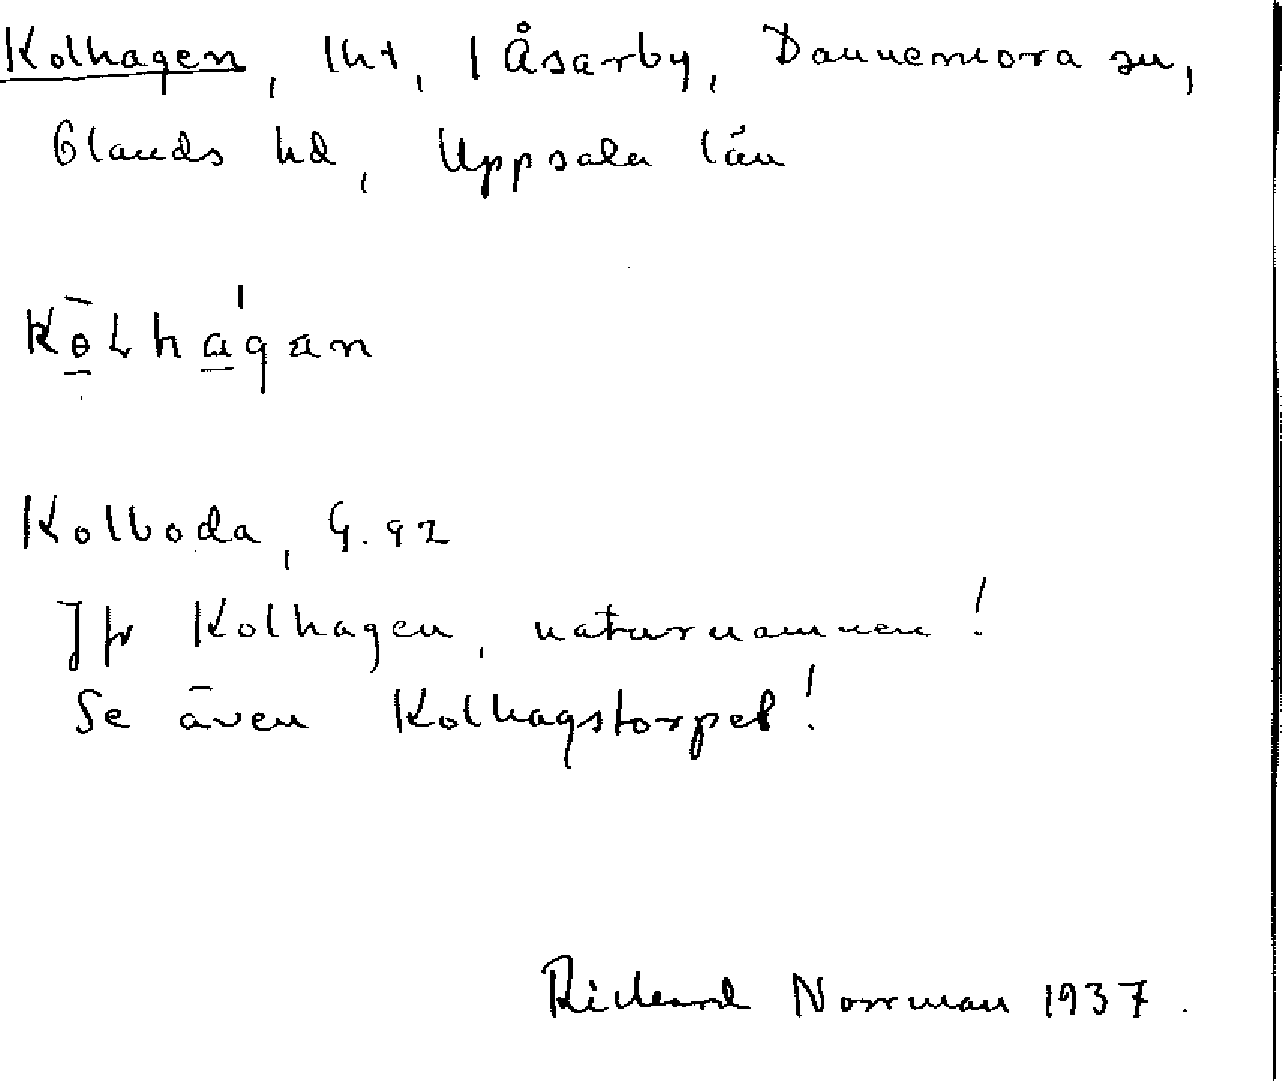 Kolhagen, lht, i Åsarby, Dannemora sn,
Olands hd, Uppsala län
Kolboda, G. 92
Jfr Kolhagen, naturnamnen!
Se även Kolhagstorpet!
Richard Norrman 1937.